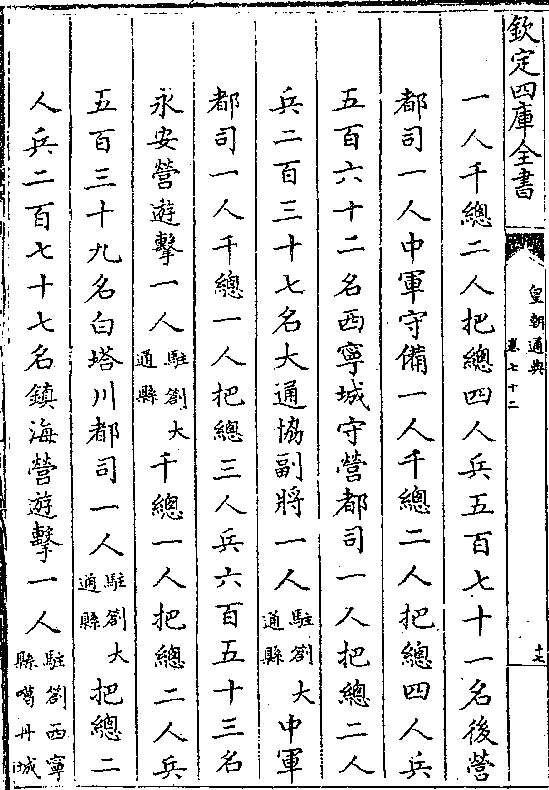 欽定四庫全書
皇朝通典
卷七十二
十七
一人千總二人把總四人兵五百七十一名後營
都司一人中軍守備一人千總二人把總四人兵
五百六十二名西寧城守營都司一人把總二人
兵二百三十七名大通協副將一人駐劄大通縣中軍
都司一人千總一人把總三人兵六百五十三名
永安營遊擊一人駐劄大通縣千總一人把總二人兵
五百三十九名白塔川都司一人駐劄大通縣把總二
人兵二百七十七名鎮海營遊擊一人駐劄西寧縣噶丹城